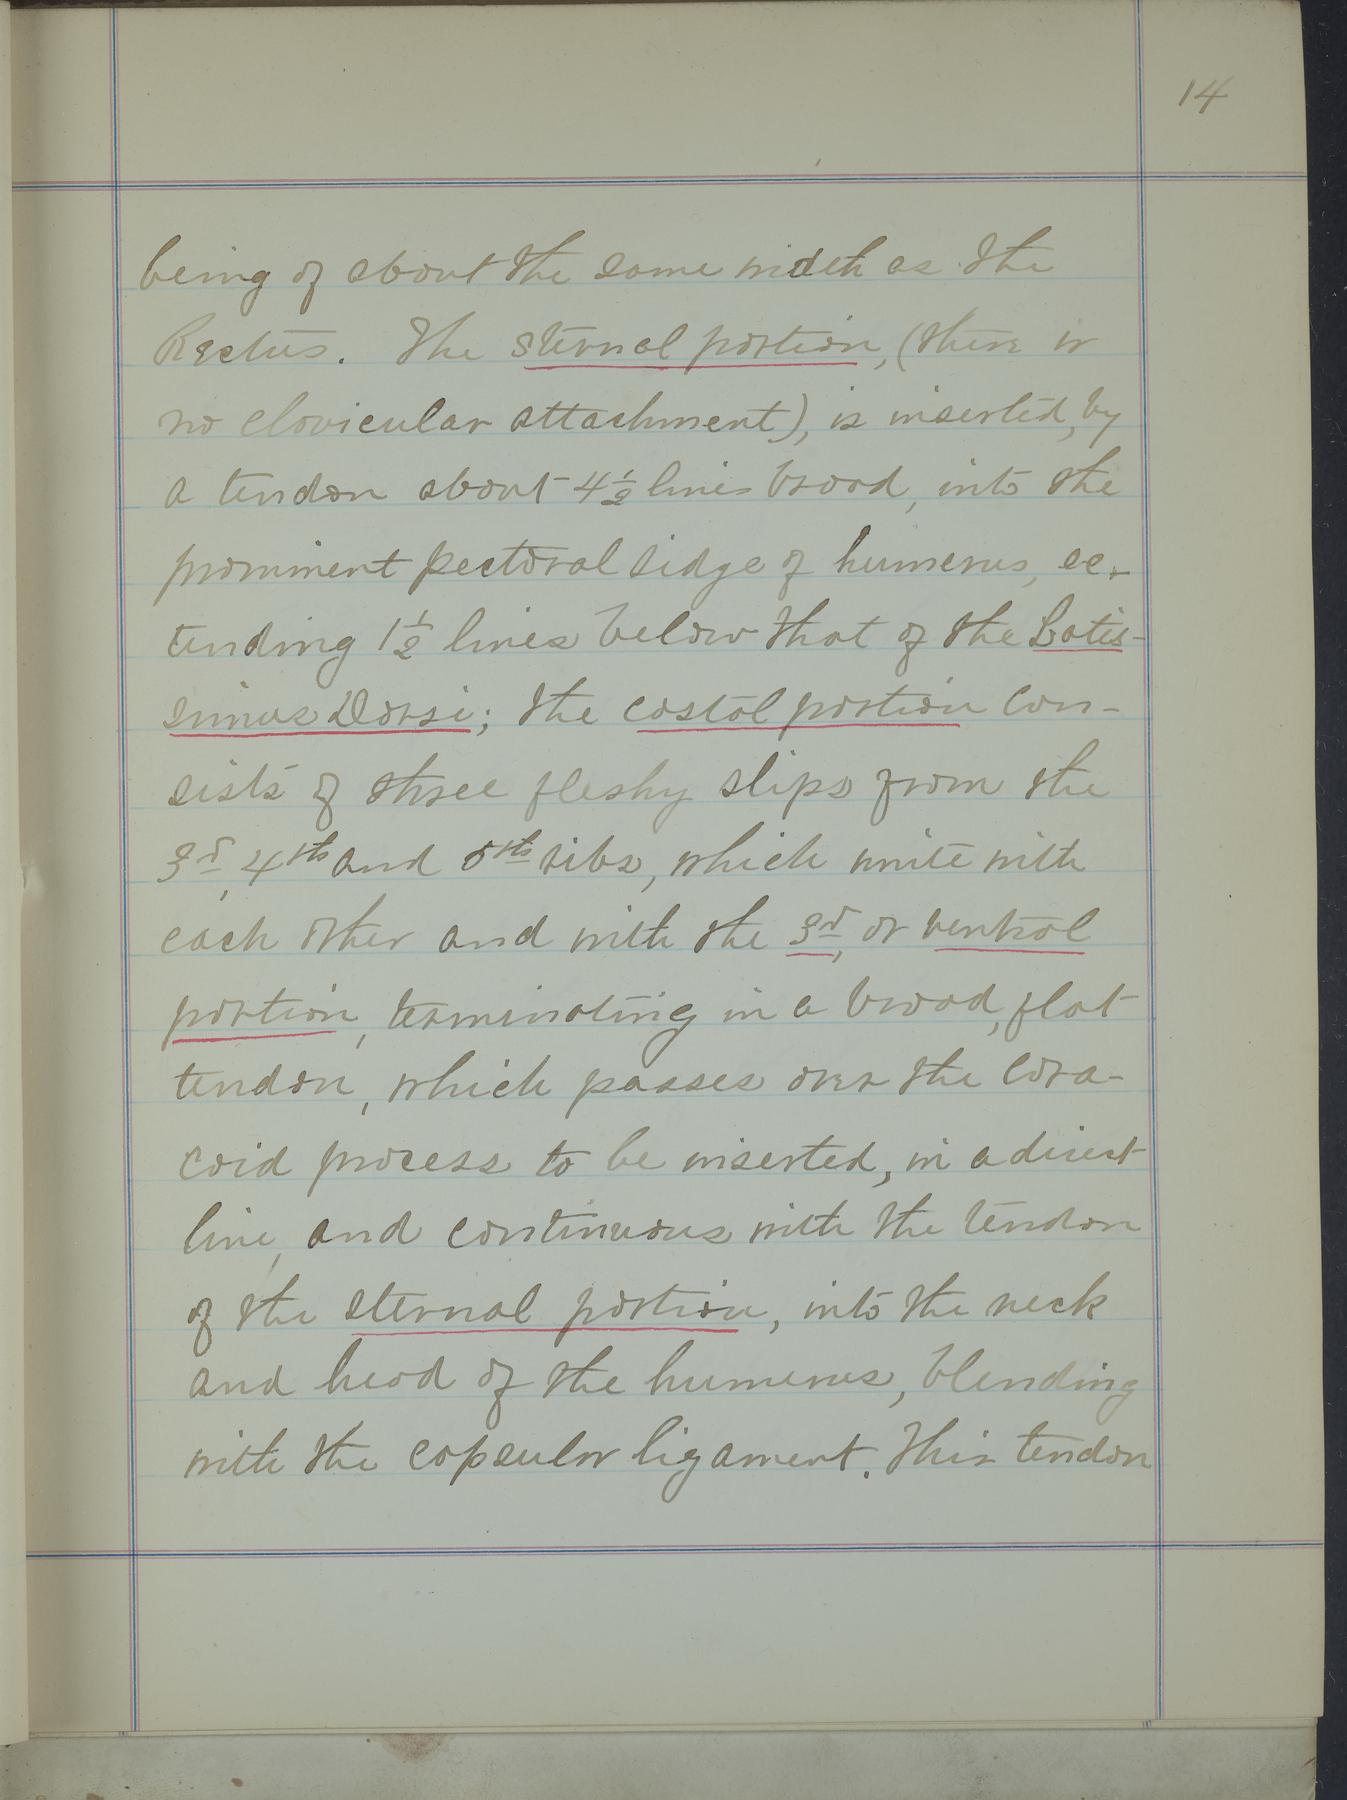 14
being of about the same width as the
Rectus. The sternal portion, (there is
no clavicular attachment), is inserted, by
a tendon about 4½ lines broad, into the
prominent pectoral ridge of humerus, ex-
tending 1½ lines below that of the Latis-
simus Dorsi; the costal portion con-
sists of three fleshy slips from the
3rd, 4th and 5th ribs, which unite with
each other and with the 3rd, or ventral
portion, terminating in a broad, flat
tendon, which passes over the cora-
coid process to be inserted, in a direct
line, and continuous with the tendon
of the sternal portion, into the neck
and head of the humerus, blending
with the capsular ligament. This tendon